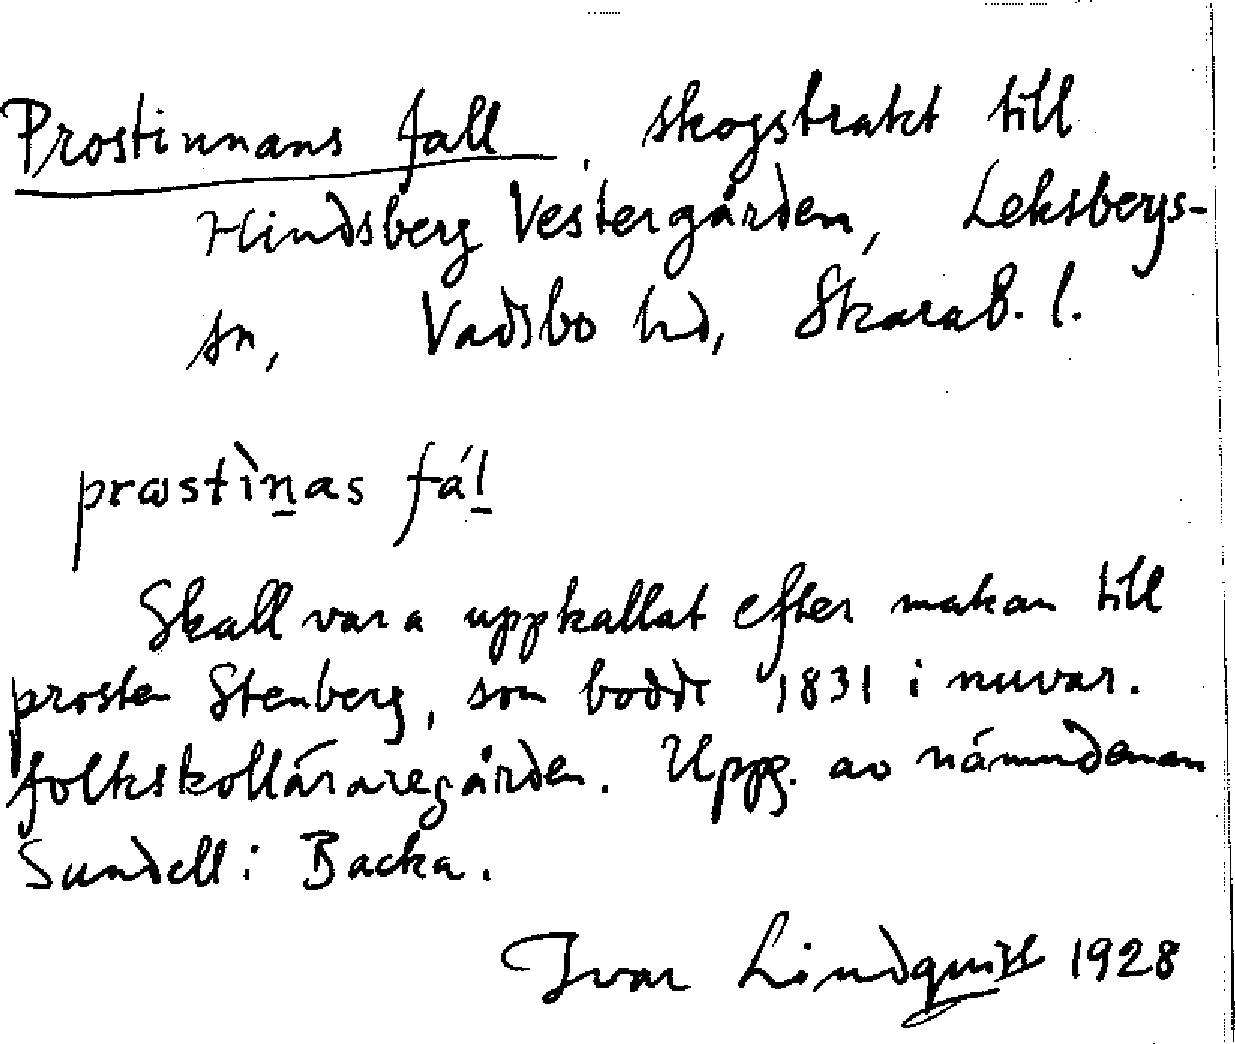 Prostinnans fall, skogstrakt till
Hindsberg Vestergården, Leksbergs-
sn, Vadsbo hd, Skarab. l.
prɷstìn̲as fál̲
Skall vara uppkallat efter makan till
prosten Stenberg, som bodde 1831 i nuvar.
folkskolläraregården. Uppg. av nämndeman
Sundell i Backa.
Ivar Lindquist 1928